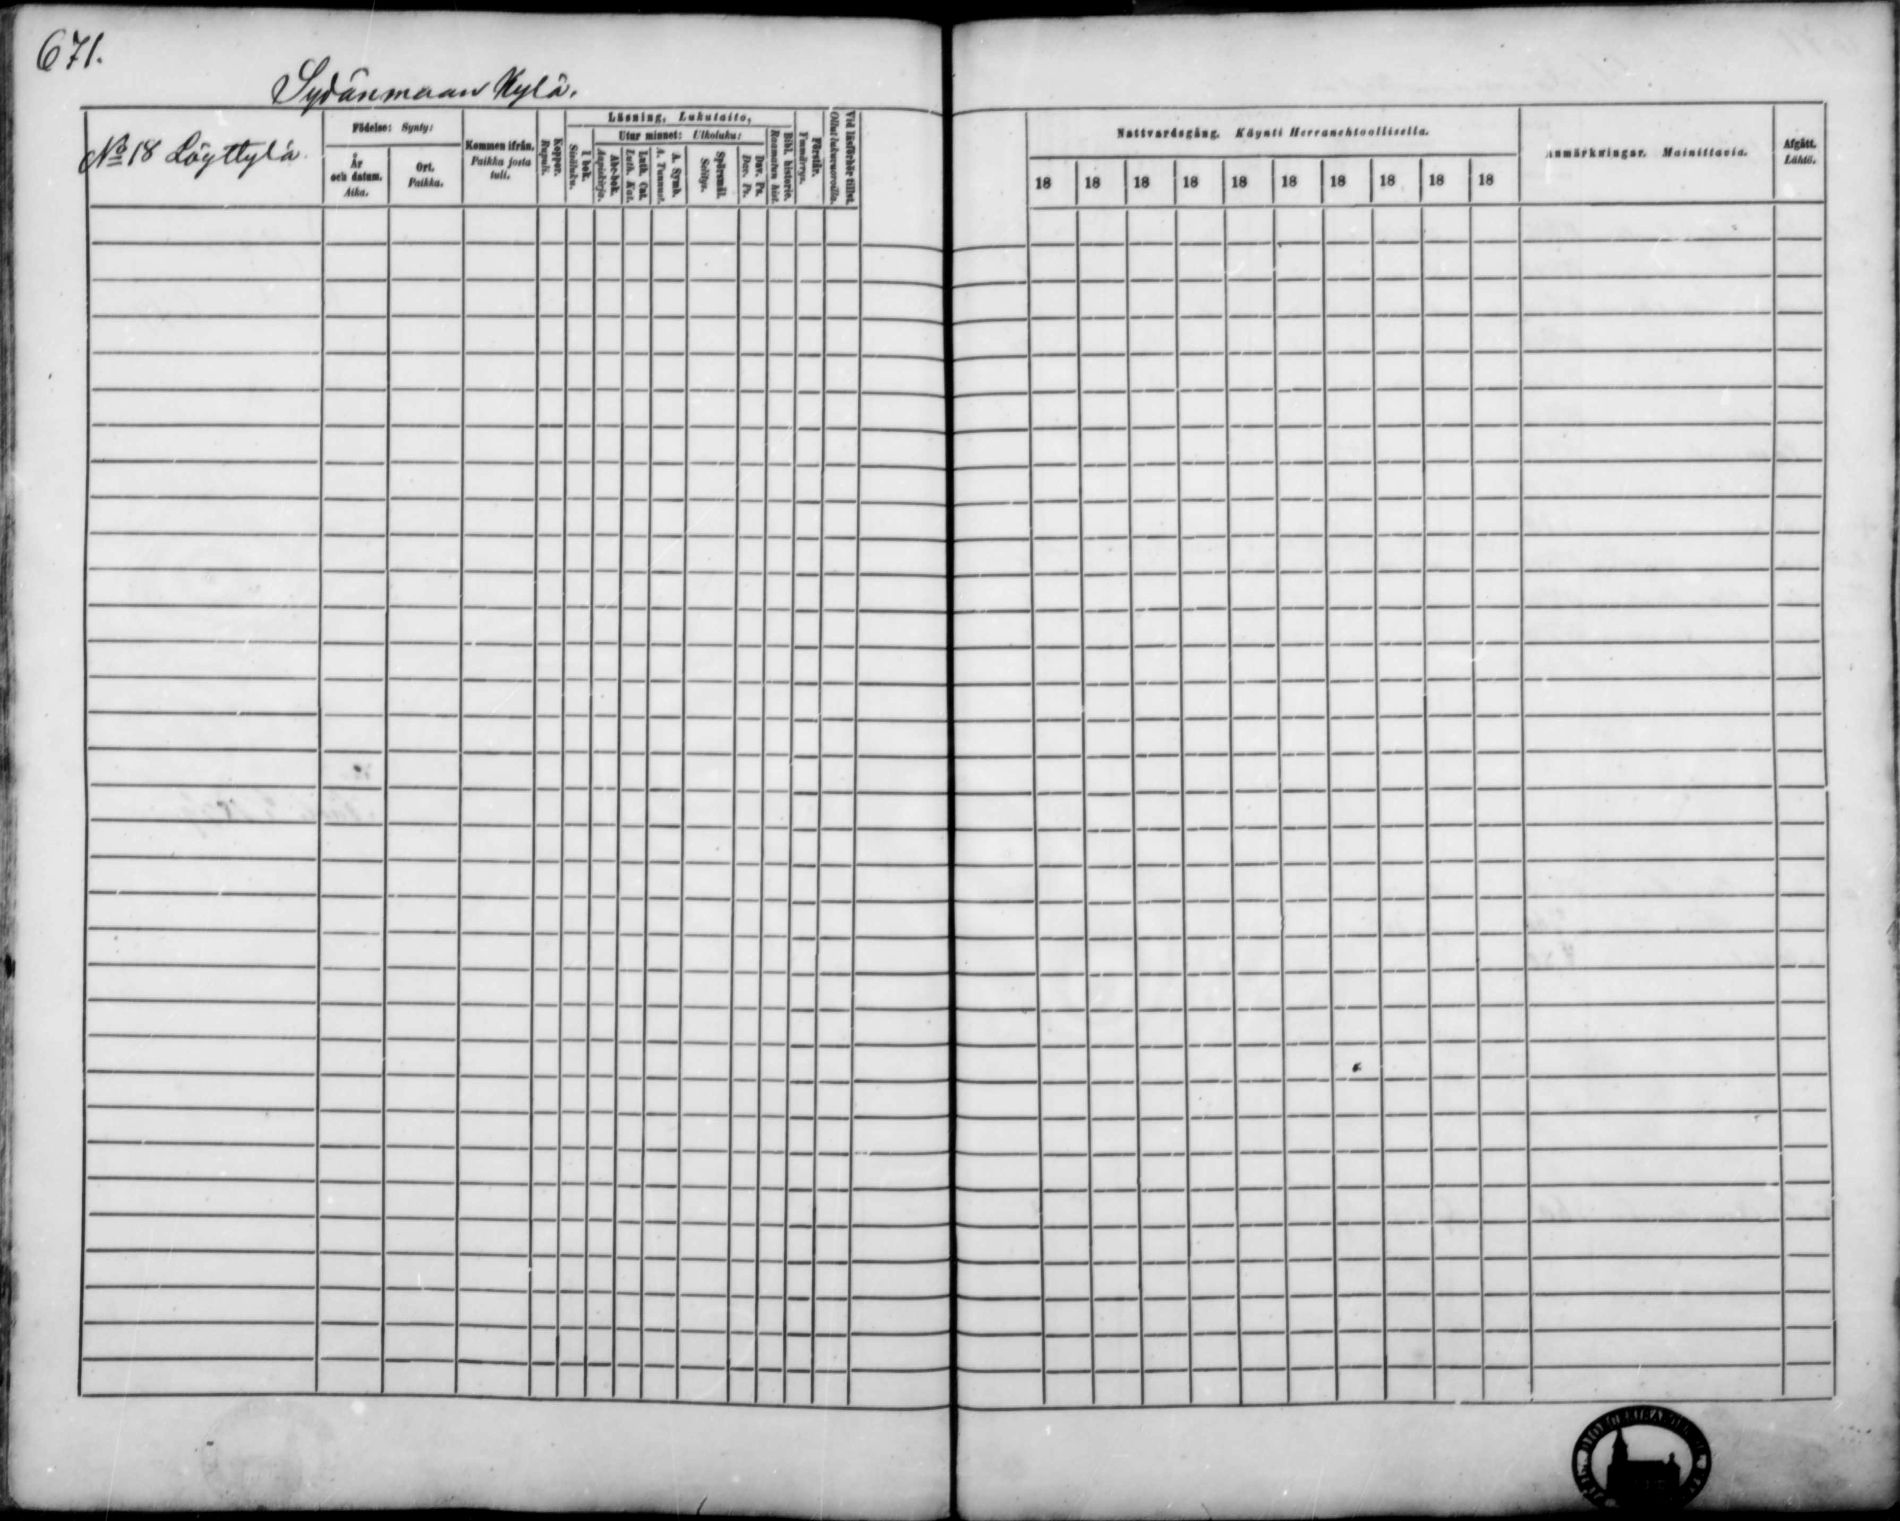 671.
Sydänmaan Kylä.
No 18 Löyttylä.
Födelse: Synty:
År och datum. Aika.
Ort. Paikka.
Kommen ifrån. Paikka josta tuli.
Koppor. Rupuli.
Läsning, Lukutaito,
I bok. Sisäluku.
Utur minnet: Ulkoluku:
Abc-bok. Aapiskirja.
Luth. Cat. Luth. Kat.
A. Symb. A. Tunnust.
Spörsmål. Selitys.
Dav. Ps. Dav. Ps.
Bibl. historie. Raamatun hist.
Förstår. Ymmärrys.
Vid läsförhör tillst. Ollut lukuvuoroilla.
Nattvardsgång. Käynti Herranehtoollisella.
18 18 18 18 18 18 18 18 18 18
Anmärkningar. Mainittavia.
Afgått. Lähtö.